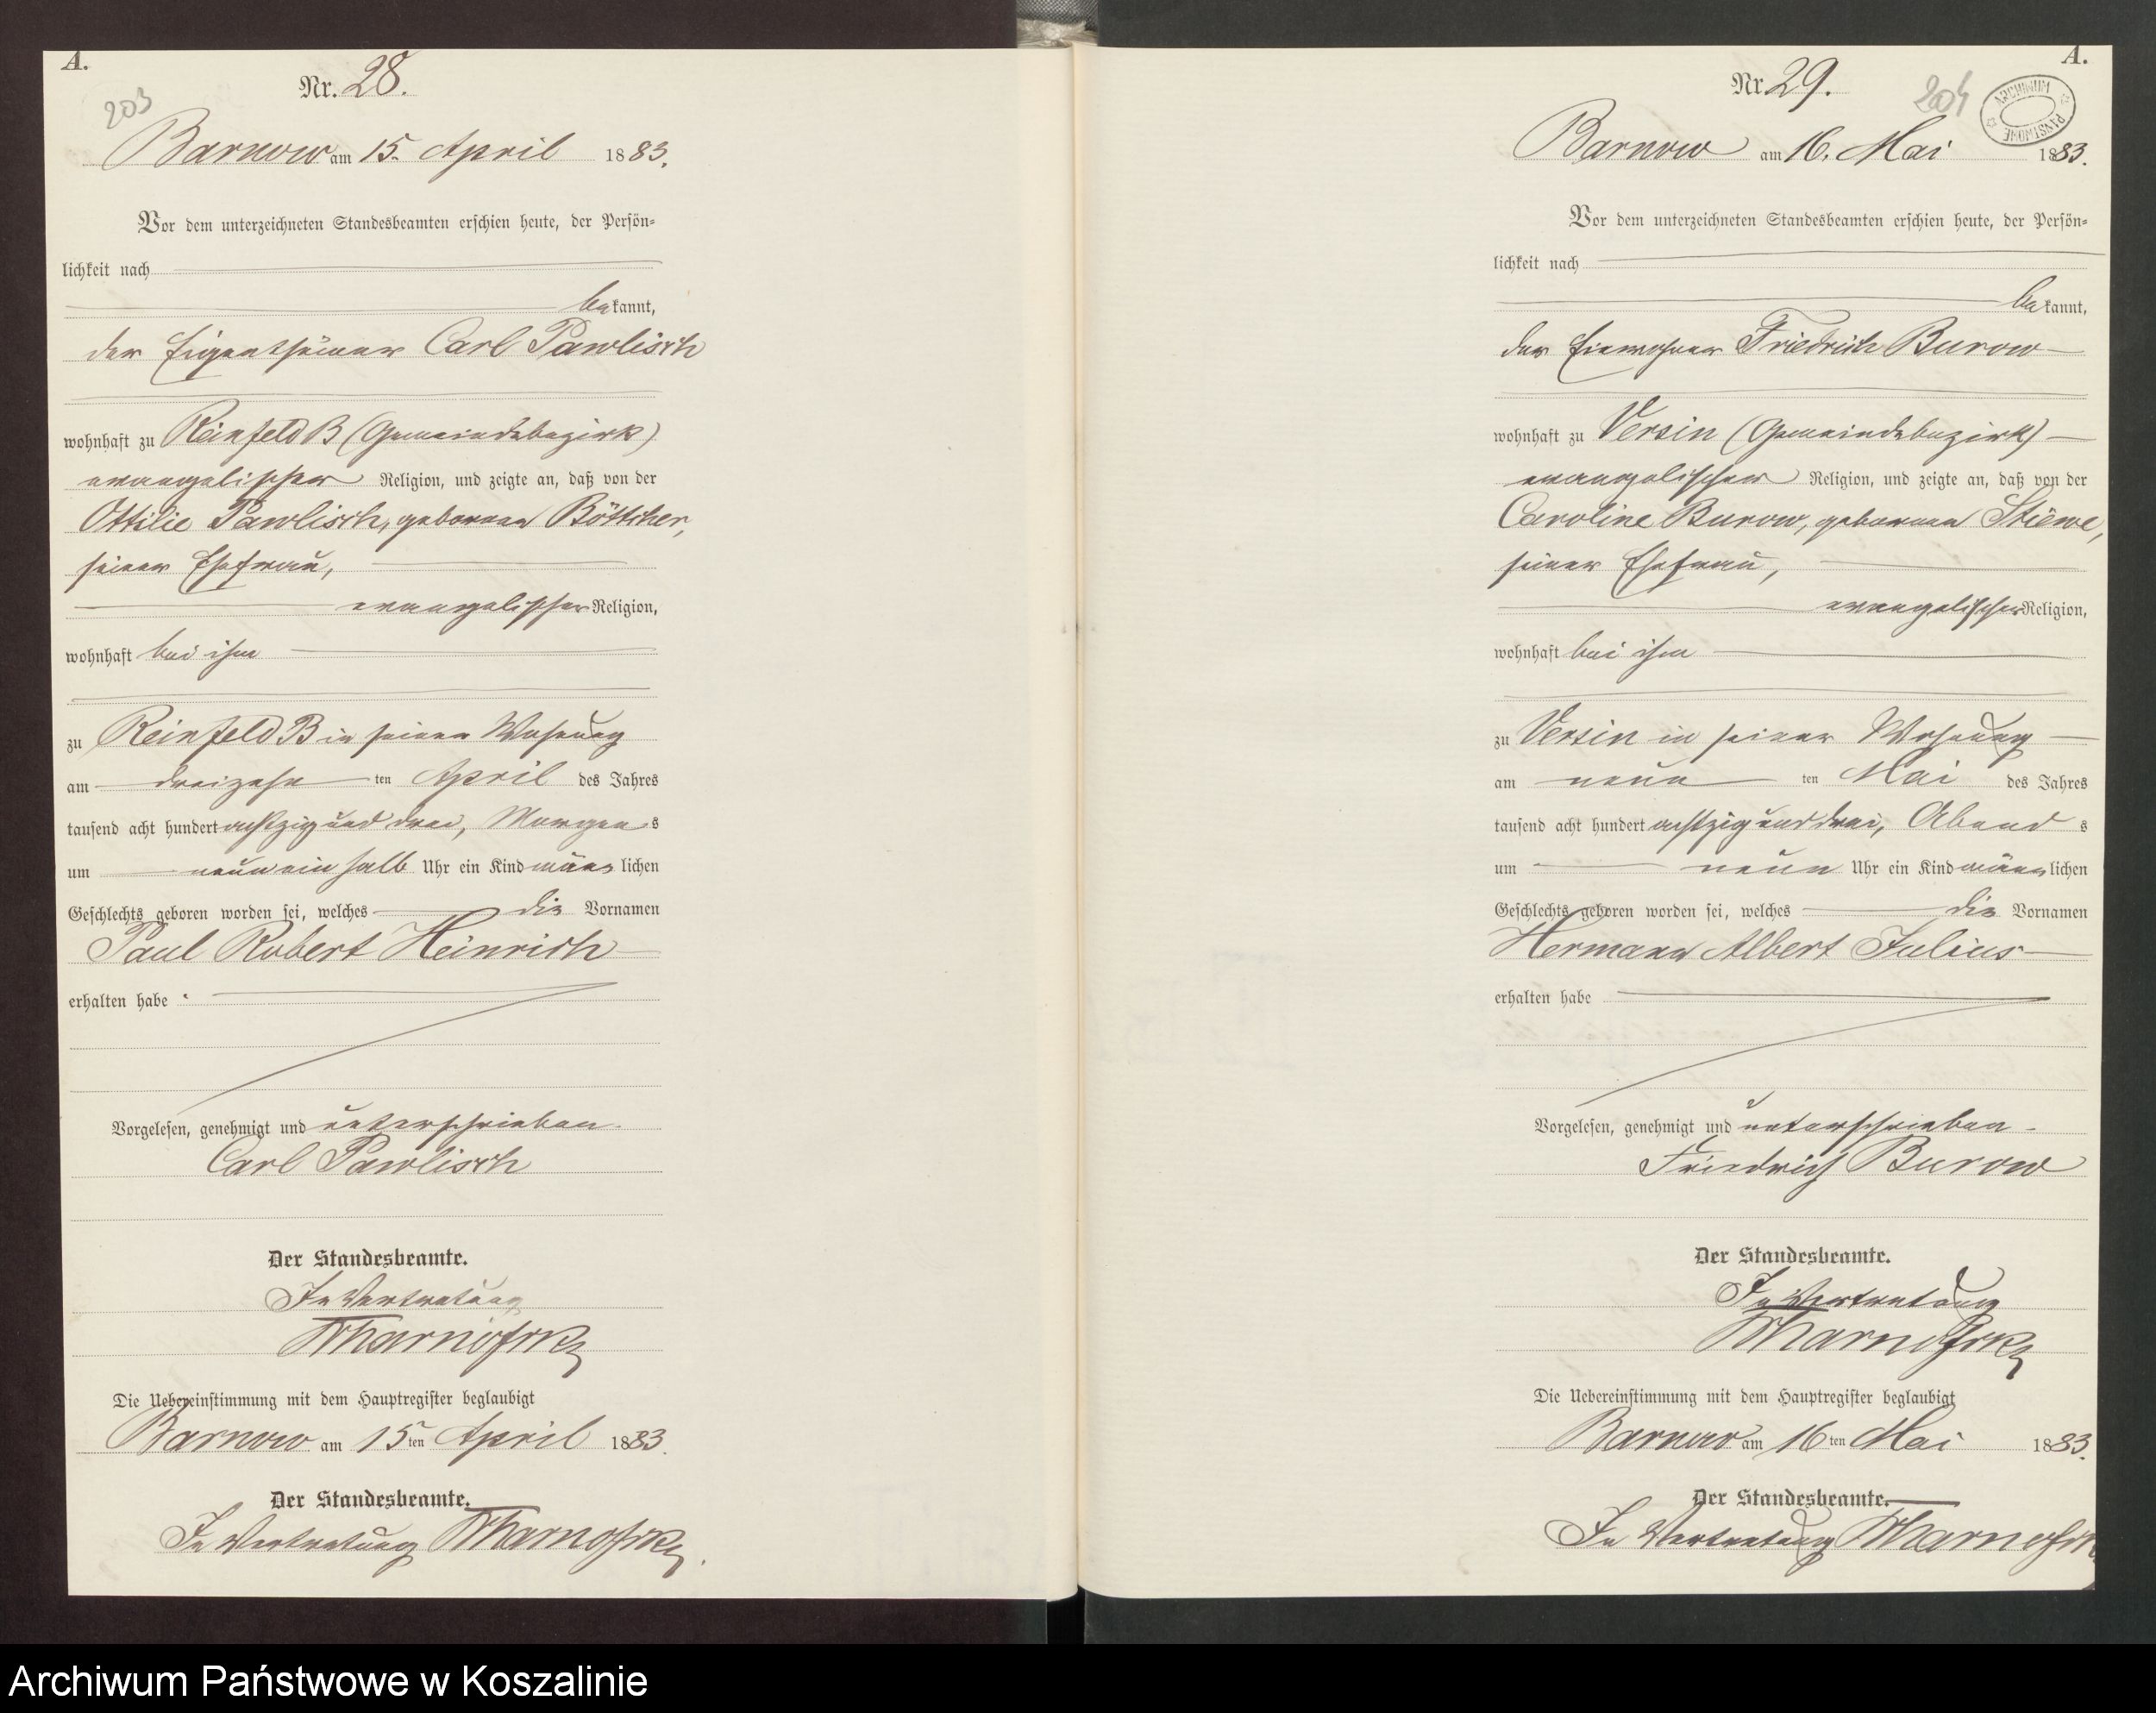 A.
Nr. 28.
203
Barnow am 15. April 1883.
Vor dem unterzeichneten Standesbeamten erschien heute, der Persön-
lichkeit nach
bekannt,
der Eigenthümer Carl Pawlisch
wohnhaft zu Reinfeld B (Gemeindebezirk)
evangelischer Religion, und zeigte an, daß von der
Ottilie Pawlisch, geborenen Böttcher,
seiner Ehefrau,
evangelischer Religion,
wohnhaft bei ihm
zu Reinfeld B in seiner Wohnung
am dreizehn ten April des Jahres
tausend acht hundert achtzig und drei, Morgens
um neun ein halb Uhr ein Kind männlichen
Geschlechts geboren worden sei, welches die Vornamen
Paul Robert Heinrich
erhalten habe
Vorgelesen, genehmigt und unterschrieben.
Carl Pawlisch
Der Standesbeamte.
In Vertretung
Die Uebereinstimmung mit dem Hauptregister beglaubigt
Barnow am 15ten April 1883.
Der Standesbeamte.
In Vertretung
A.
Nr. 29.
204
ARCHIWUM PAŃSTWOWE
Barnow am 16. Mai 1883.
Vor dem unterzeichneten Standesbeamten erschien heute, der Persön-
lichkeit nach
bekannt,
der Einwohner Friedrich Burow
wohnhaft zu Versin (Gemeindebezirk)
evangelischer Religion, und zeigte an, daß von der
Caroline Burow, geborenen Stüwe,
seiner Ehefrau,
evangelischer Religion,
wohnhaft bei ihm
zu Versin in seiner Wohnung
am neun ten Mai des Jahres
tausend acht hundert achtzig und drei, Abends
um neun Uhr ein Kind männlichen
Geschlechts geboren worden sei, welches die Vornamen
Hermann Albert Julius
erhalten habe
Vorgelesen, genehmigt und unterschrieben.
Friedrich Burow
Der Standesbeamte.
In Vertretung
Die Uebereinstimmung mit dem Hauptregister beglaubigt
Barnow am 16ten Mai 1883.
Der Standesbeamte.
In Vertretung
Archiwum Państwowe w Koszalinie